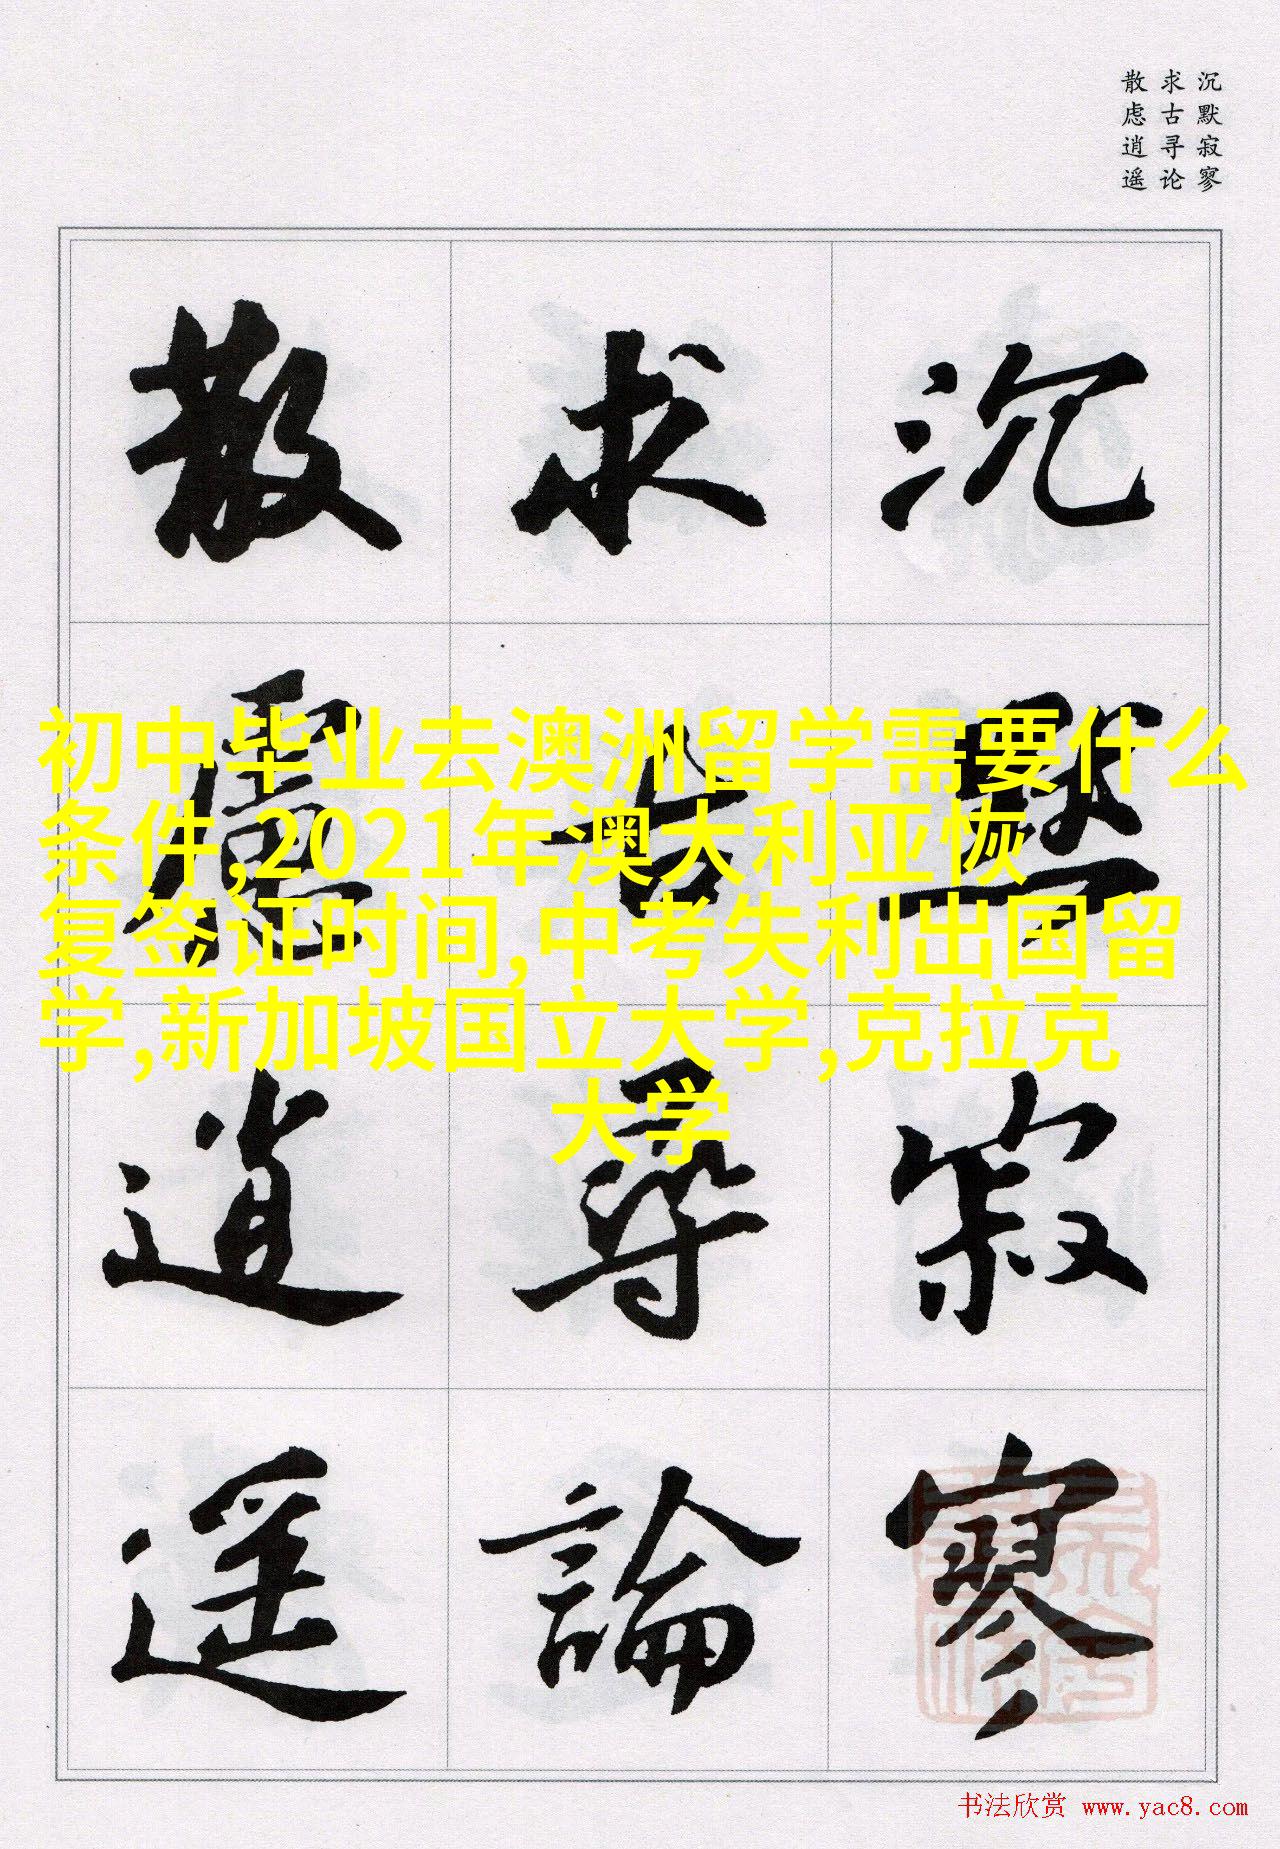 沉默寂寥
求古寻论
散虑逍遥
沉黙寂寥
求古尋論
散慮逍遥
初中毕业去澳洲留学需要什么
条件,2021年澳大利亚恢
复签证时间,中考失利出国留
学,新加坡国立大学,克拉克
大学
书法欣赏 www.yac8.com